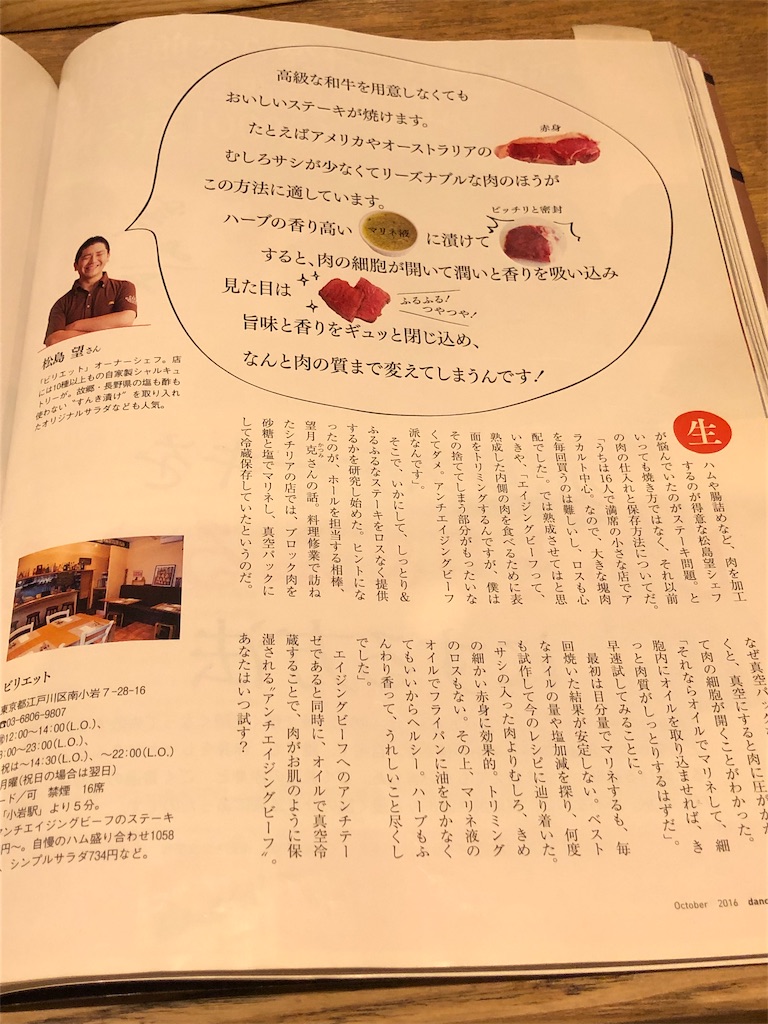 高級な和牛を用意しなくても
おいしいステーキが焼けます。
たとえばアメリカやオーストラリアの
赤身
むしろサシが少なくてリーズナブルな肉のほうが
この方法に適しています。
ハーブの香り高い
マリネ液
に漬けて
ピッチリと密封
すると、肉の細胞が開いて潤いと香りを吸い込み
見た目は
ふるふる!
つやつや!
旨味と香りをギュッと閉じ込め、
なんと肉の質まで変えてしまうんです!
松島 望さん
「ビリエット」オーナーシェフ。店
には10種以上もの自家製シャルキュ
トリーが。故郷・長野県の塩も酢も
使わない“すんき漬け”を取り入れ
たオリジナルサラダなども人気。
生
ハムや腸詰めなど、肉を加工
するのが得意な松島望シェフ
が悩んでいたのがステーキ問題。と
いっても焼き方ではなく、それ以前
の肉の仕入れと保存方法についてだ。
「うちは16人で満席の小さな店でア
ラカルト中心。なので、大きな塊肉
を毎回買うのは難しいし、ロスも心
配でした」。では熟成させてはと思
いきや、「エイジングビーフって、
熟成した内側の肉を食べるために表
面をトリミングするんですが、僕は
その捨ててしまう部分がもったいな
くてダメ。アンチエイジングビーフ
派なんです」。
そこで、いかにして、しっとり&
ふるふるなステーキをロスなく提供
するかを研究し始めた。ヒントにな
ったのが、ホールを担当する相棒、
望月克さんの話。料理修業で訪ね
かつみ
たシチリアの店では、ブロック肉を
砂糖と塩でマリネし、真空パックに
して冷蔵保存していたというのだ。
なぜ真空パック
くと、真空にすると肉に圧がかか
て肉の細胞が開くことがわかった。
「それならオイルでマリネして、細
胞内にオイルを取り込ませれば、き
っと肉質がしっとりするはずだ」。
早速試してみることに。
最初は目分量でマリネするも、毎
回焼いた結果が安定しない。ベスト
なオイルの量や塩加減を探り、何度
も試作して今のレシピに辿り着いた。
「サシの入った肉よりむしろ、きめ
の細かい赤身に効果的。トリミング
のロスもない。その上、マリネ液の
オイルでフライパンに油をひかなく
てもいいからヘルシー。ハーブもふ
んわり香って、うれしいこと尽くし
でした」。
エイジングビーフへのアンチテー
ゼであると同時に、オイルで真空冷
蔵することで、肉がお肌のように保
湿される“アンチエイジングビーフ”。
あなたはいつ試す?
ビリエット
東京都江戸川区南小岩7-28-16
☎03-6806-9807
12:00〜14:00(L.O.)、
:00〜23:00(L.O.)、
祝は〜14:30(L.O.)、〜22:00(L.O.)
月曜(祝日の場合は翌日)
ード/可 禁煙 16席
「小岩駅」より5分。
ンチエイジングビーフのステーキ
円〜。自慢のハム盛り合わせ1058
、シンプルサラダ734円など。
October 2016 danc